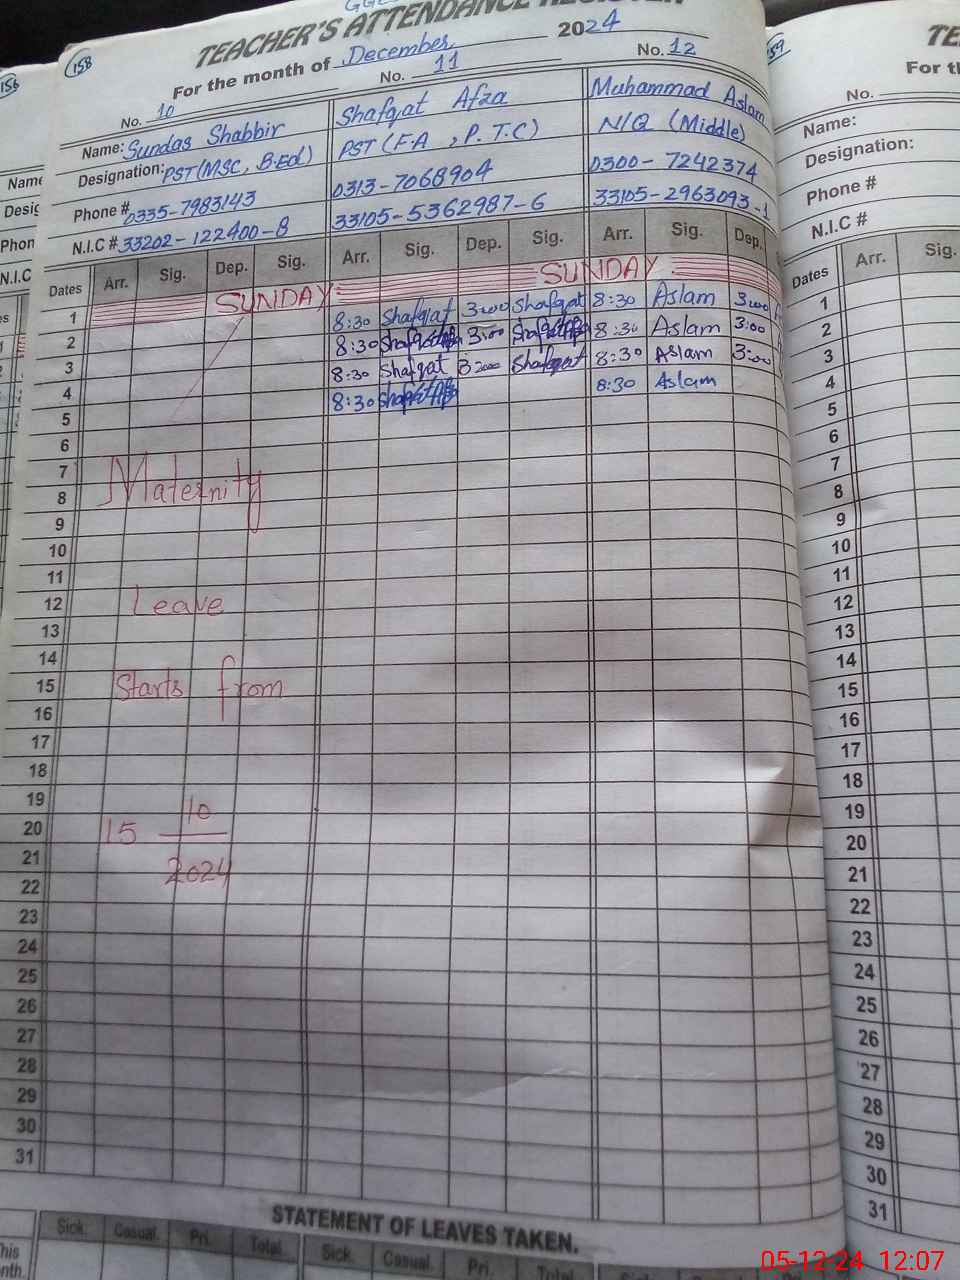 158
TEACHER'S ATTENDANCE REGISTER
For the month of December 2024
No. 10 No. 11 No. 12
Name: Sundas Shabbir Shafqat Afza Muhammad Aslam
Designation: PST (MSC, B.Ed) PST (F.A , P.T.C) N/Q (Middle)
Phone # 0335-7983143 0313-7068904 0300-7242374
N.I.C # 33202-122400-8 33105-5362987-6 33105-2963093-1
Dates Arr. Sig. Dep. Sig. Arr. Sig. Dep. Sig. Arr. Sig. Dep.
1 SUNDAY SUNDAY
2 8:30 Shafqat 3:00 Shafqat 8:30 Aslam 3:00
3 8:30 3:00 8:30 Aslam 3:00
4 8:30 Shafqat Shafqat 8:30 Aslam 3:00
5 8:30 8:30 Aslam
6
7
8 Maternity
9
10
11
12 Leave
13
14
15 Starts from
16
17
18
19
20 15 10
21 2024
22
23
24
25
26
27
28
29
30
31
STATEMENT OF LEAVES TAKEN.
Sick. Casual. Pri. Total. Sick. Casual. Pri. Total.
156
Name
Phon
N.I.C
159
TE
For th
No.
Name:
Designation:
Phone #
N.I.C #
Dates Arr. Sig.
1
2
3
4
5
6
7
8
9
10
11
12
13
14
15
16
17
18
19
20
21
22
23
24
25
26
27
28
29
30
31
05-12-24 12:07